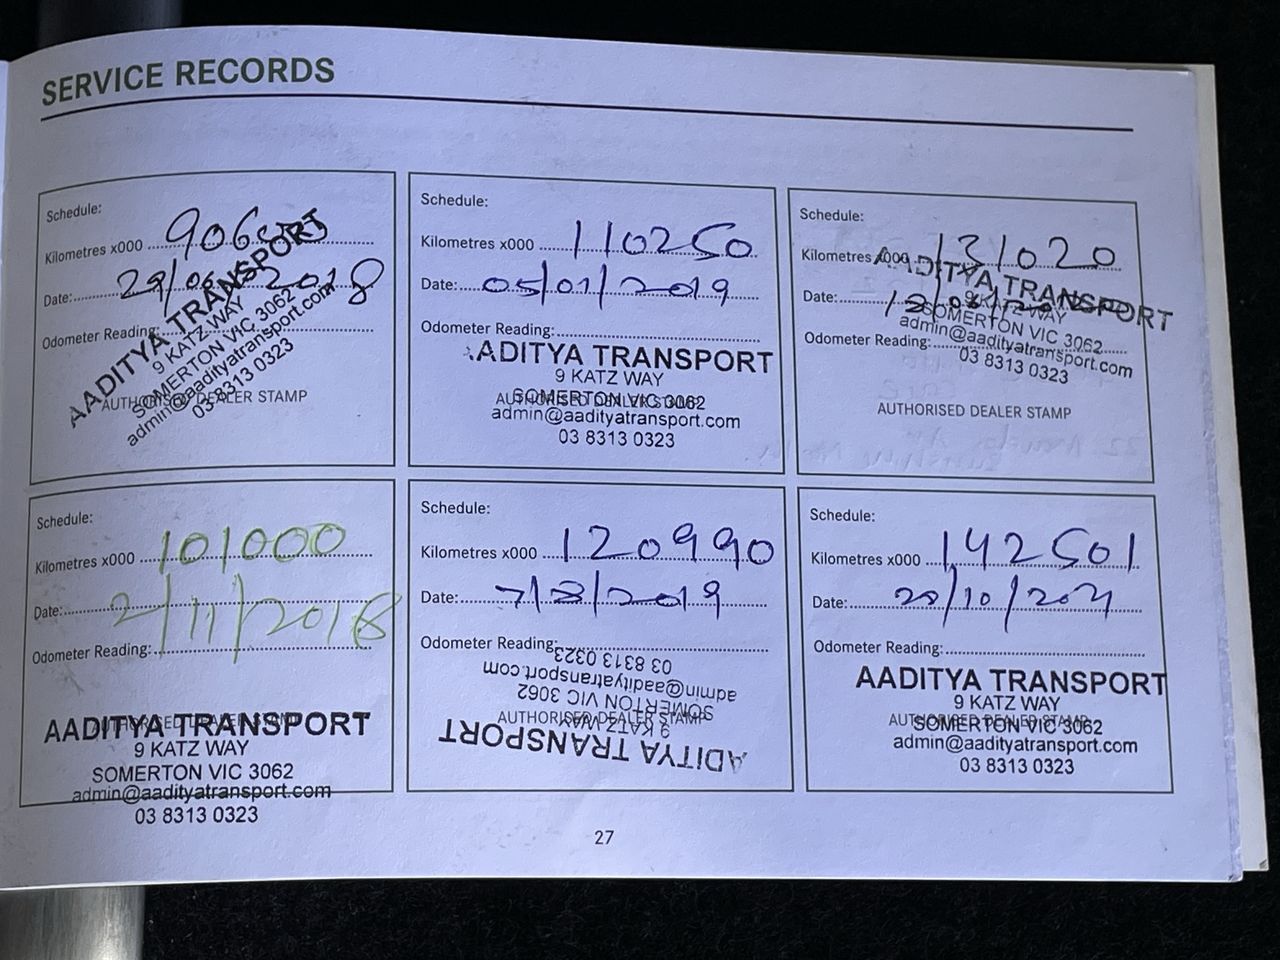 SERVICE RECORDS
Schedule:
Kilometres x000
Date: 29/06/2018
Odometer Reading:
AUTHORISED DEALER STAMP
AADITYA TRANSPORT
9 KATZ WAY
SOMERTON VIC 3062
admin@aadityatransport.com
03 8313 0323
Schedule:
Kilometres x000 110250
Date: 05/01/2019
Odometer Reading:
AUTHORISED DEALER STAMP
ADITYA TRANSPORT
9 KATZ WAY
SOMERTON VIC 3062
admin@aadityatransport.com
03 8313 0323
Schedule:
Kilometres x000 131020
Date:
Odometer Reading:
AADITYA TRANSPORT
9 KATZ WAY
SOMERTON VIC 3062
admin@aadityatransport.com
03 8313 0323
AUTHORISED DEALER STAMP
Schedule:
Kilometres x000 101000
Date: 2/11/2018
Odometer Reading:
AUTHORISED DEALER STAMP
AADITYA TRANSPORT
9 KATZ WAY
SOMERTON VIC 3062
admin@aadityatransport.com
03 8313 0323
Schedule:
Kilometres x000 120990
Date: 7/8/2019
Odometer Reading:
AUTHORISED DEALER STAMP
ADITYA TRANSPORT
9 KATZ WAY
SOMERTON VIC 3062
admin@aadityatransport.com
03 8313 0323
Schedule:
Kilometres x000 142501
Date: 20/10/2021
Odometer Reading:
AADITYA TRANSPORT
9 KATZ WAY
AUTHORISED DEALER STAMP
SOMERTON VIC 3062
admin@aadityatransport.com
03 8313 0323
27